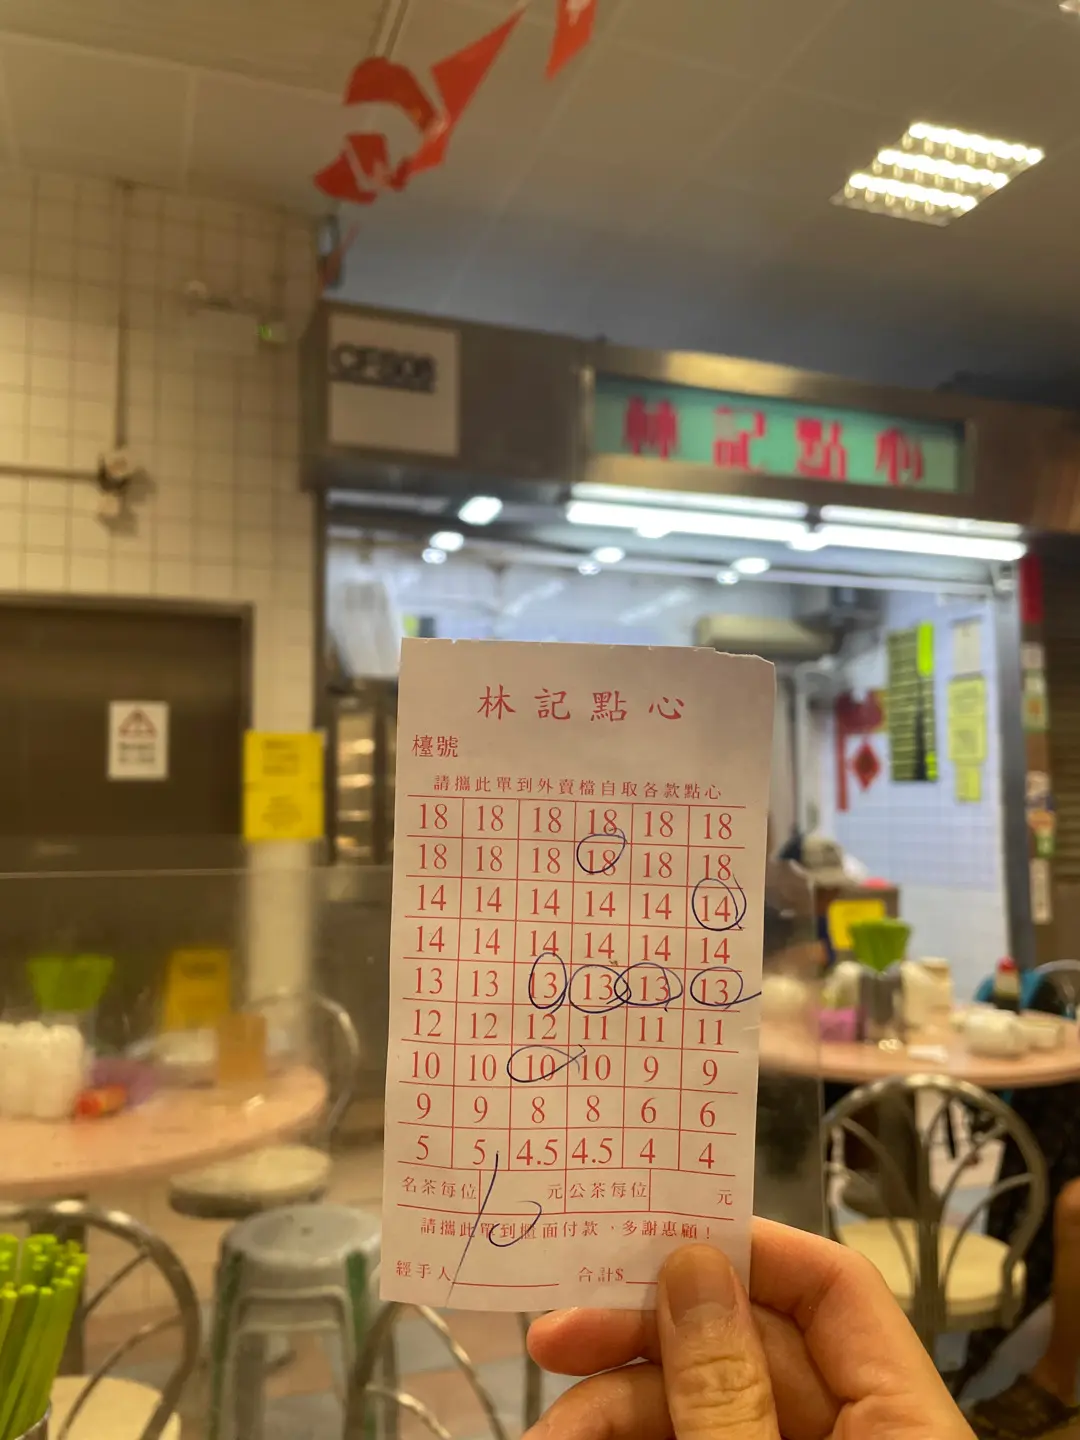 CF508
林記點心
林記點心
檯號
請攜此單到外賣檔自取各款點心
18 18 18 18 18 18
18 18 18 18 18 18
14 14 14 14 14 14
14 14 14 14 14 14
13 13 13 13 13 13
12 12 12 11 11 11
10 10 10 10 9 9
9 9 8 8 6 6
5 5 4.5 4.5 4 4
名茶每位 元 公茶每位 元
請攜此單到櫃面付款，多謝惠顧！
經手人 合計$